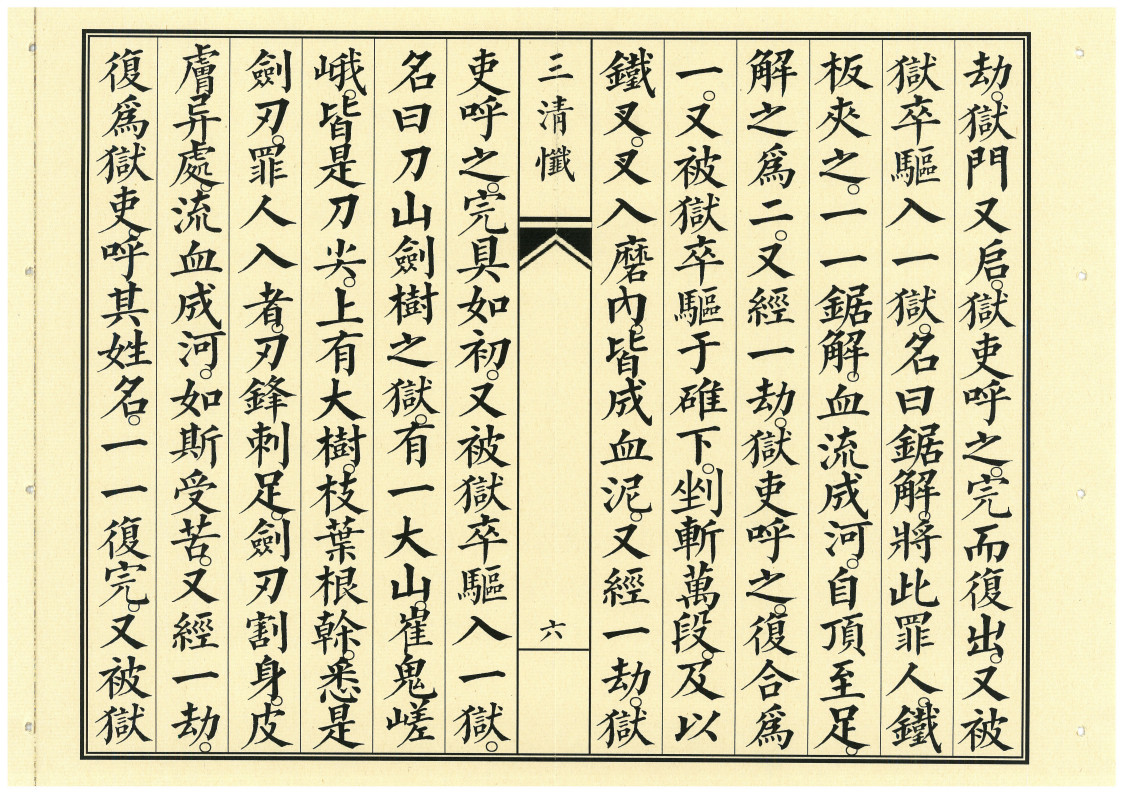 劫。獄門又启。獄吏呼之。完而復出。又被
獄卒驅入一獄。名曰鋸解。將此罪人。鐵
板夾之。一一鋸解。血流成河。自頂至足。
解之爲二。又經一劫。獄吏呼之。復合爲
一。又被獄卒驅于碓下。剉斬萬段。及以
鐵叉。叉入磨內。皆成血泥。又經一劫。獄
三清懺
六
吏呼之。完具如初。又被獄卒驅入一獄。
名曰刀山劍樹之獄。有一大山。崔鬼嵯
峨。皆是刀尖。上有大樹。枝葉根幹。悉是
劍刃。罪人入者。刃鋒刺足。劍刃割身。皮
膚异處。流血成河。如斯受苦。又經一劫。
復爲獄吏。呼其姓名。一一復完。又被獄